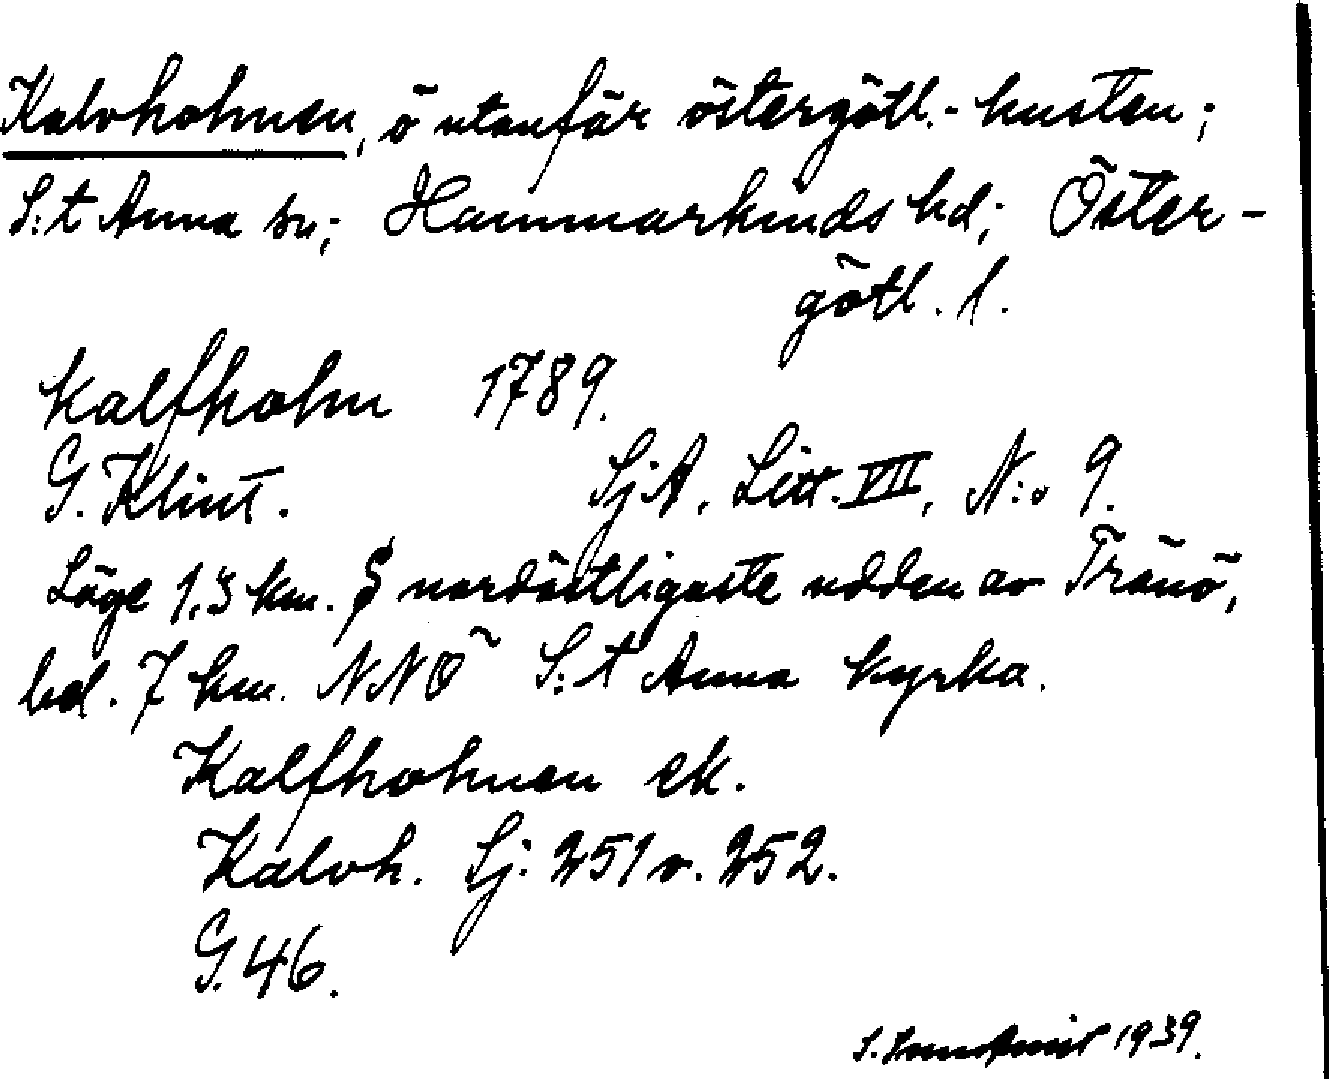 Kalvholmen, ö utanför östergötl.-kusten;
S:t Anna sn; Hammarkinds hd; Öster-
götl. l.
Kalfholm 1789.
G. Klint. SjA, Litt. VII, N:o 9.
Läge 1,3 km. S nordöstligaste udden av Tränö,
bel. 7 km. NNÖ S:t Anna kyrka.
Kalfholmen ek.
Kalvh. Sj. 251 o. 252.
G. 46.
S. 1939.